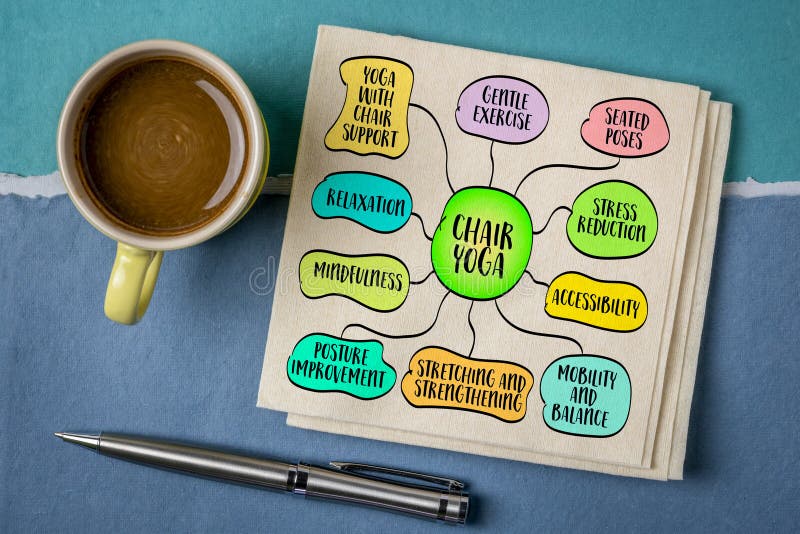 YOGA
WITH
CHAIR
SUPPORT
GENTLE
EXERCISE
SEATED
POSES
RELAXATION
CHAIR
YOGA
STRESS
REDUCTION
MINDFULNESS
ACCESSIBILITY
POSTURE
IMPROVEMENT
STRETCHING AND
STRENGTHENING
MOBILITY
AND
BALANCE
dreamstime